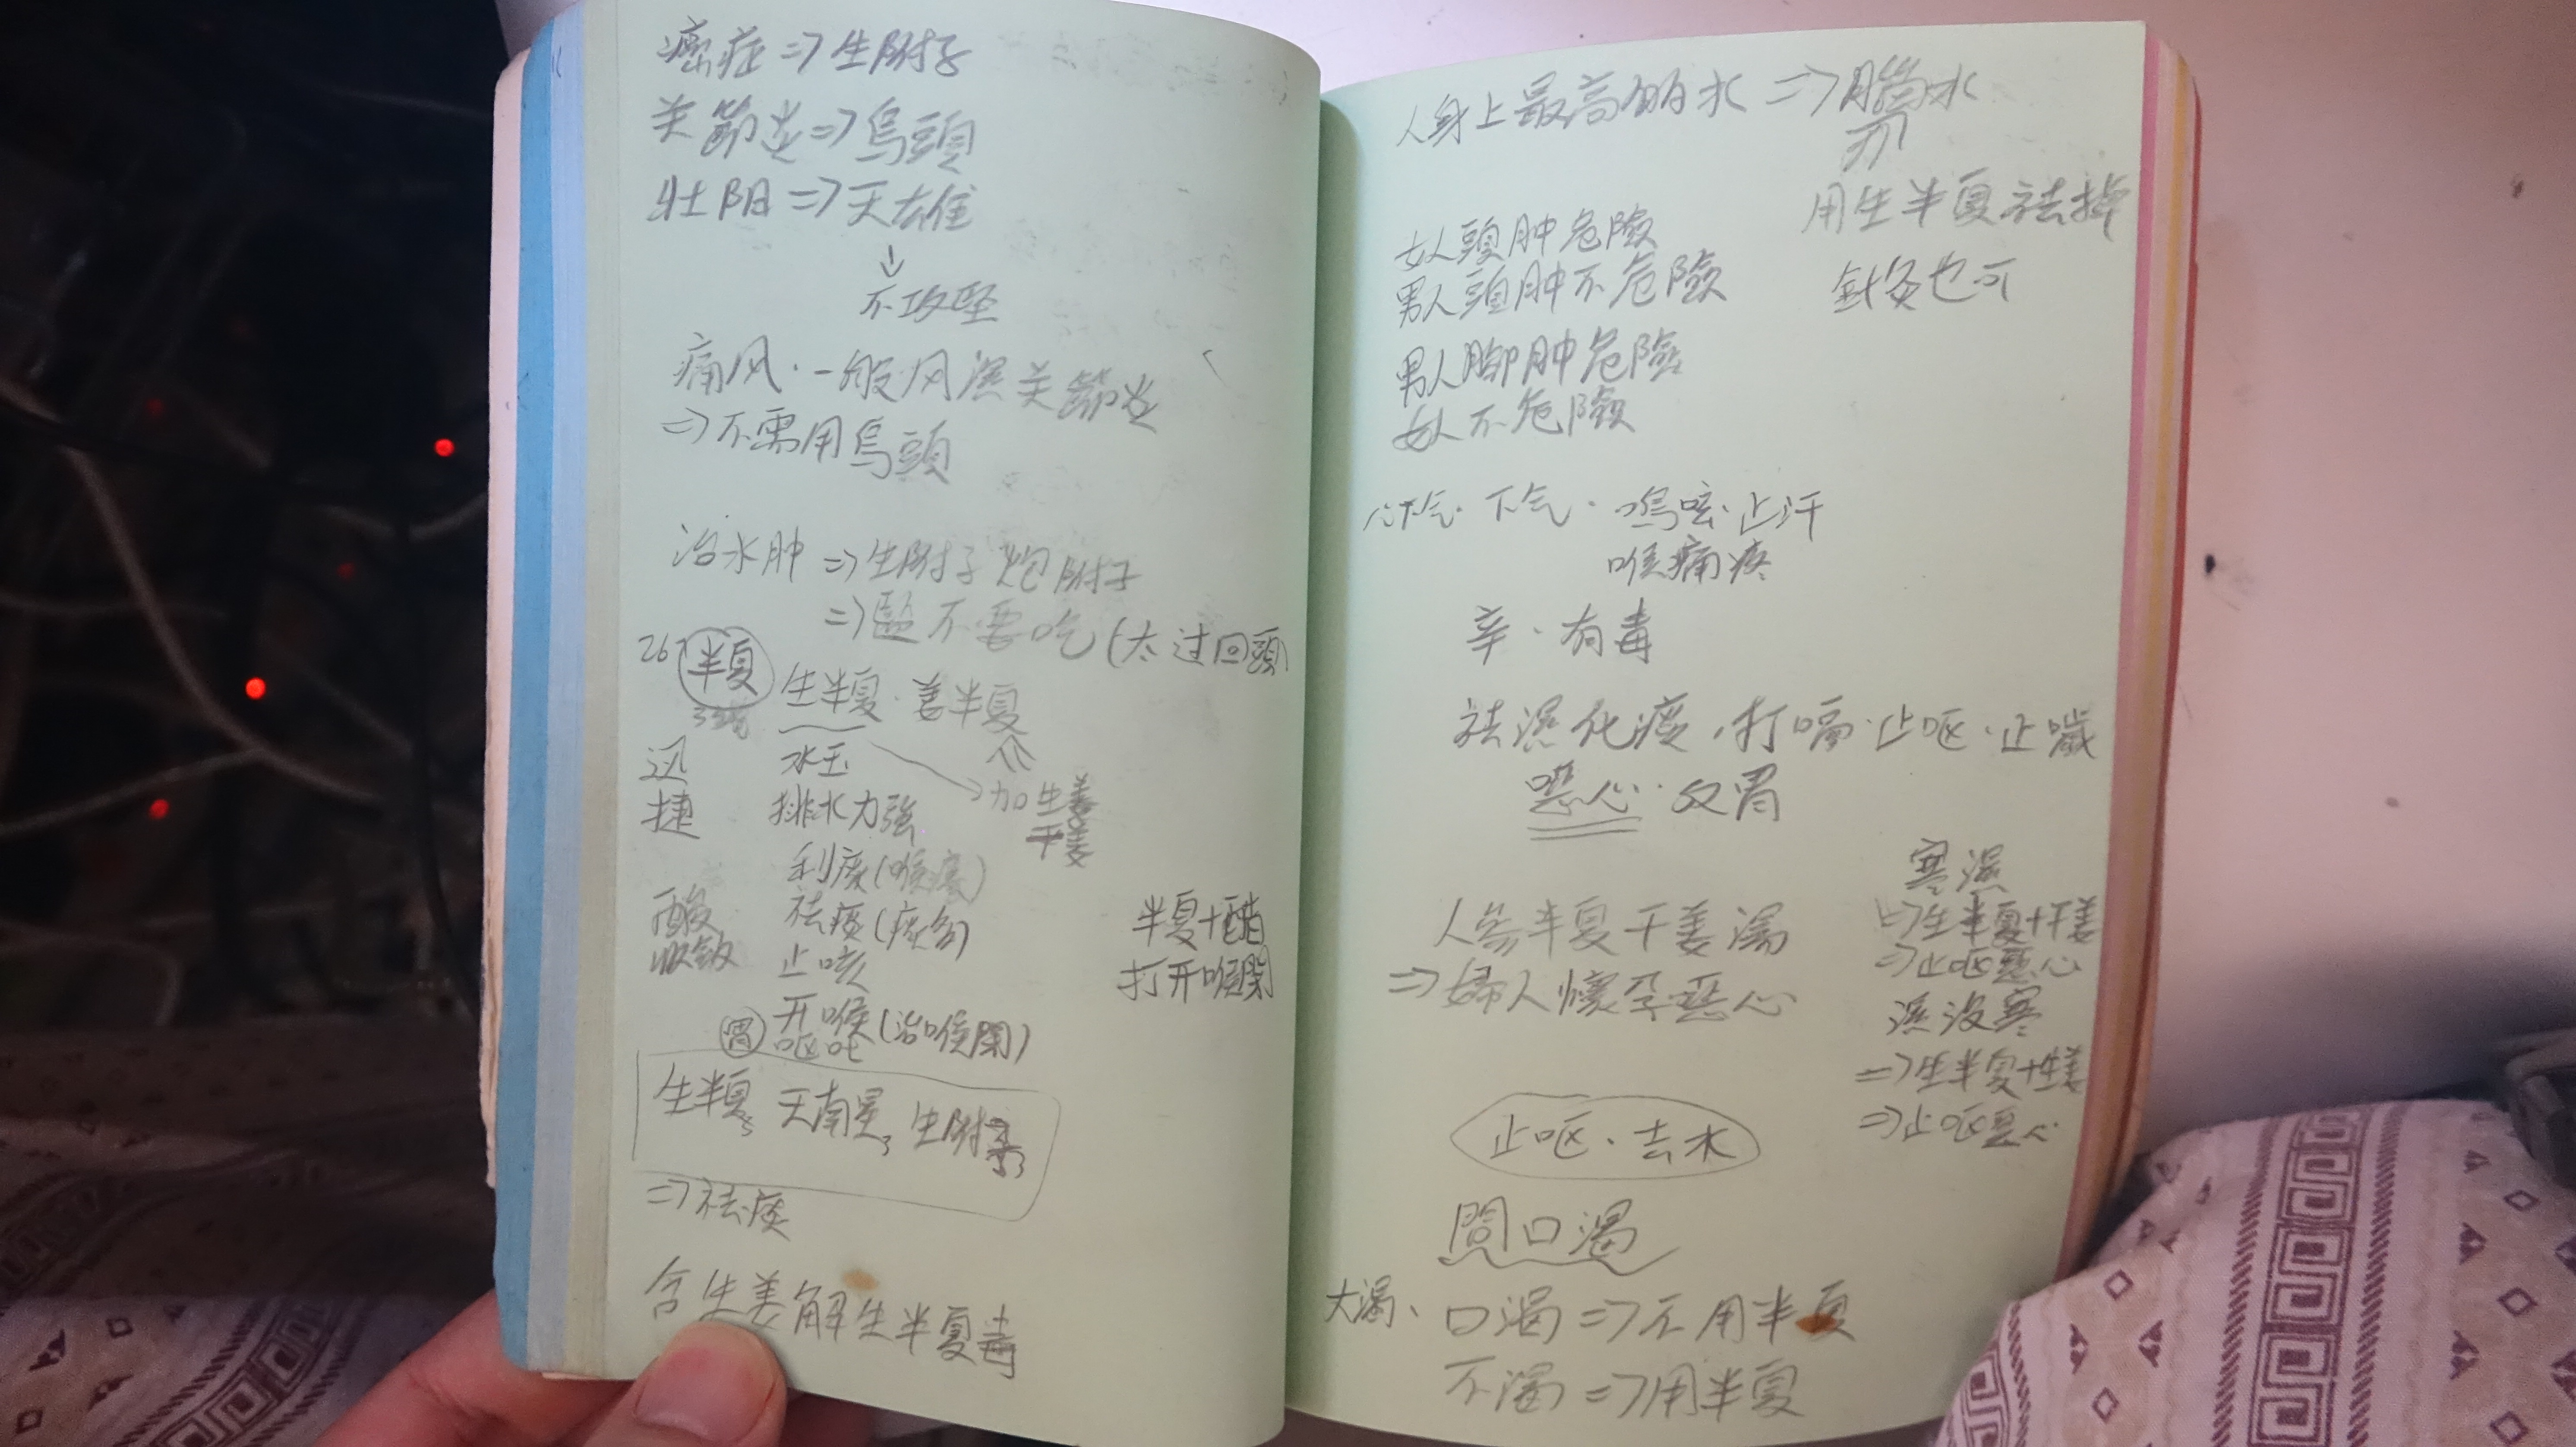 癌症⇒生附子
关節炎⇒烏頭
壯阳⇒天雄
↓
不攻坚
痛风·一般风濕关節炎
⇒不需用烏頭
治水肿⇒生附子 炮附子
⇒鹽不要吃(太过回頭
267 半夏
生半夏·姜半夏
迅 水玉
捷 排水力強 加生姜
干姜
利痰(喉痰)
酸 祛痰(痰多) 半夏+醋
收敛 止咳 打开喉関
开喉(治喉関)
胃 呕吐
生半夏3 天南星3 生附子3
⇒祛痰
含生姜解生半夏毒
人身上最高的水⇒腦水
用生半夏祛掉
針灸也可
女人頭肿危險
男人頭肿不危險
男人脚肿危險
女人不危險
心下气·下气·嗚咳·止汗
喉痛疼
辛·有毒
祛濕化痰,打嗝·止呕·止噦
噁心·反胃
人參半夏干姜湯
⇒婦人懷孕恶心
寒濕
⇒生半夏+干姜
⇒止呕恶心
濕没寒
⇒生半夏+生姜
⇒止呕恶心
止呕·去水
問口渴
大渴、口渴⇒不用半夏
不渴⇒用半夏